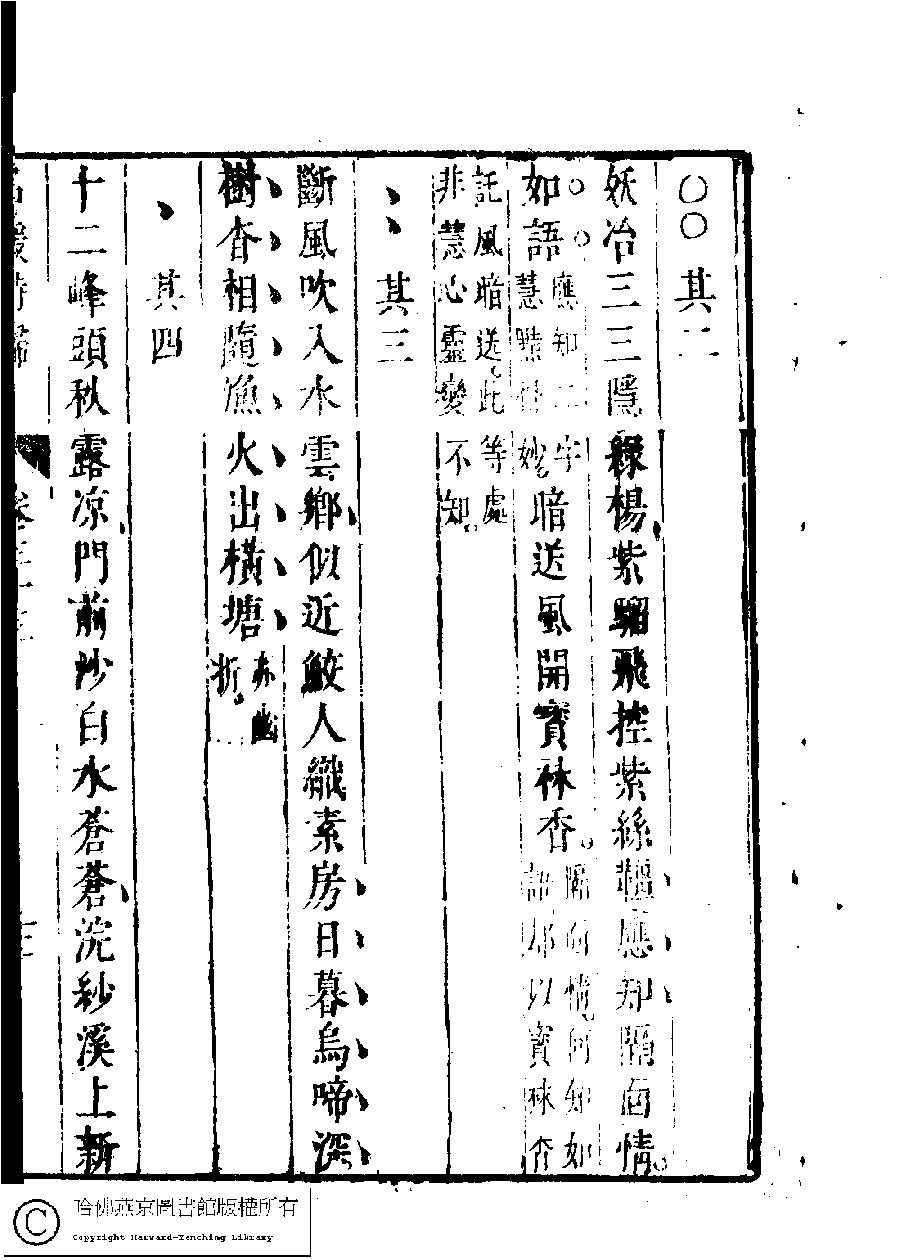 其二
妖冶三三隱綠楊紫騮飛控紫絲韁應知隔面情
如語應知二字慧㬠甘妙暗送風開寶袜香隔面情何知如語那以寶袜香
託風暗送此等處非慧心靈變不知
其三
斷風吹入水雲鄉似近鮫人織素房日暮烏啼深
樹杳相隨漁火出橫塘亦幽折
其四
十二峰頭秋露凉門前沙白水蒼蒼浣紗溪上新
名媛詩歸 卷二十三 十三
哈佛燕京圖書館版權所有
Copyright Harvard-Yenching Library